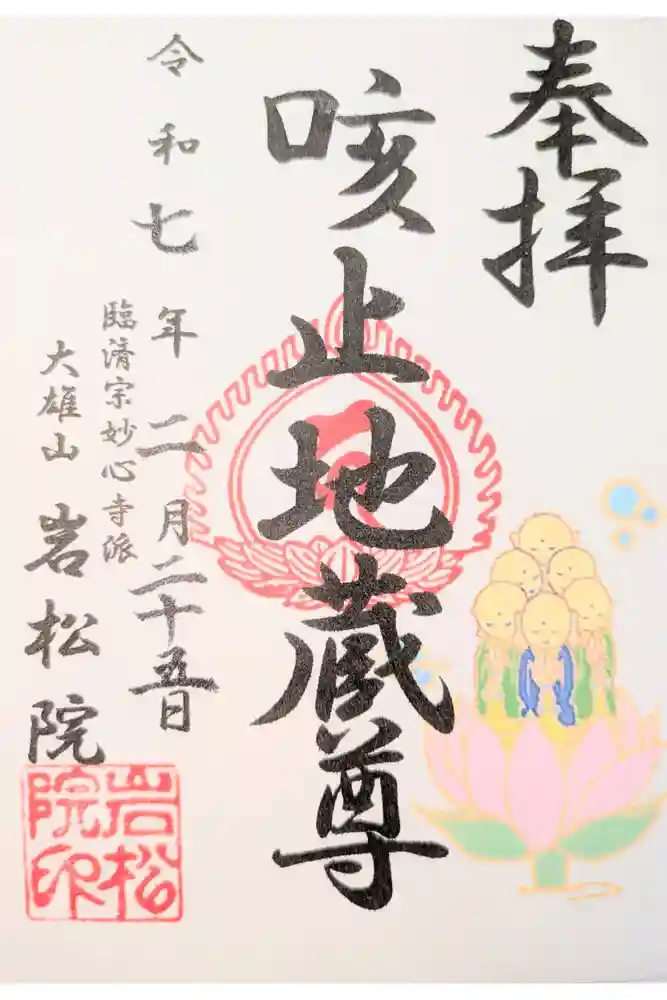 奉拝
咳止地蔵尊
令和七年二月二十五日
臨済宗妙心寺派
大雄山 岩松院
岩松
院印